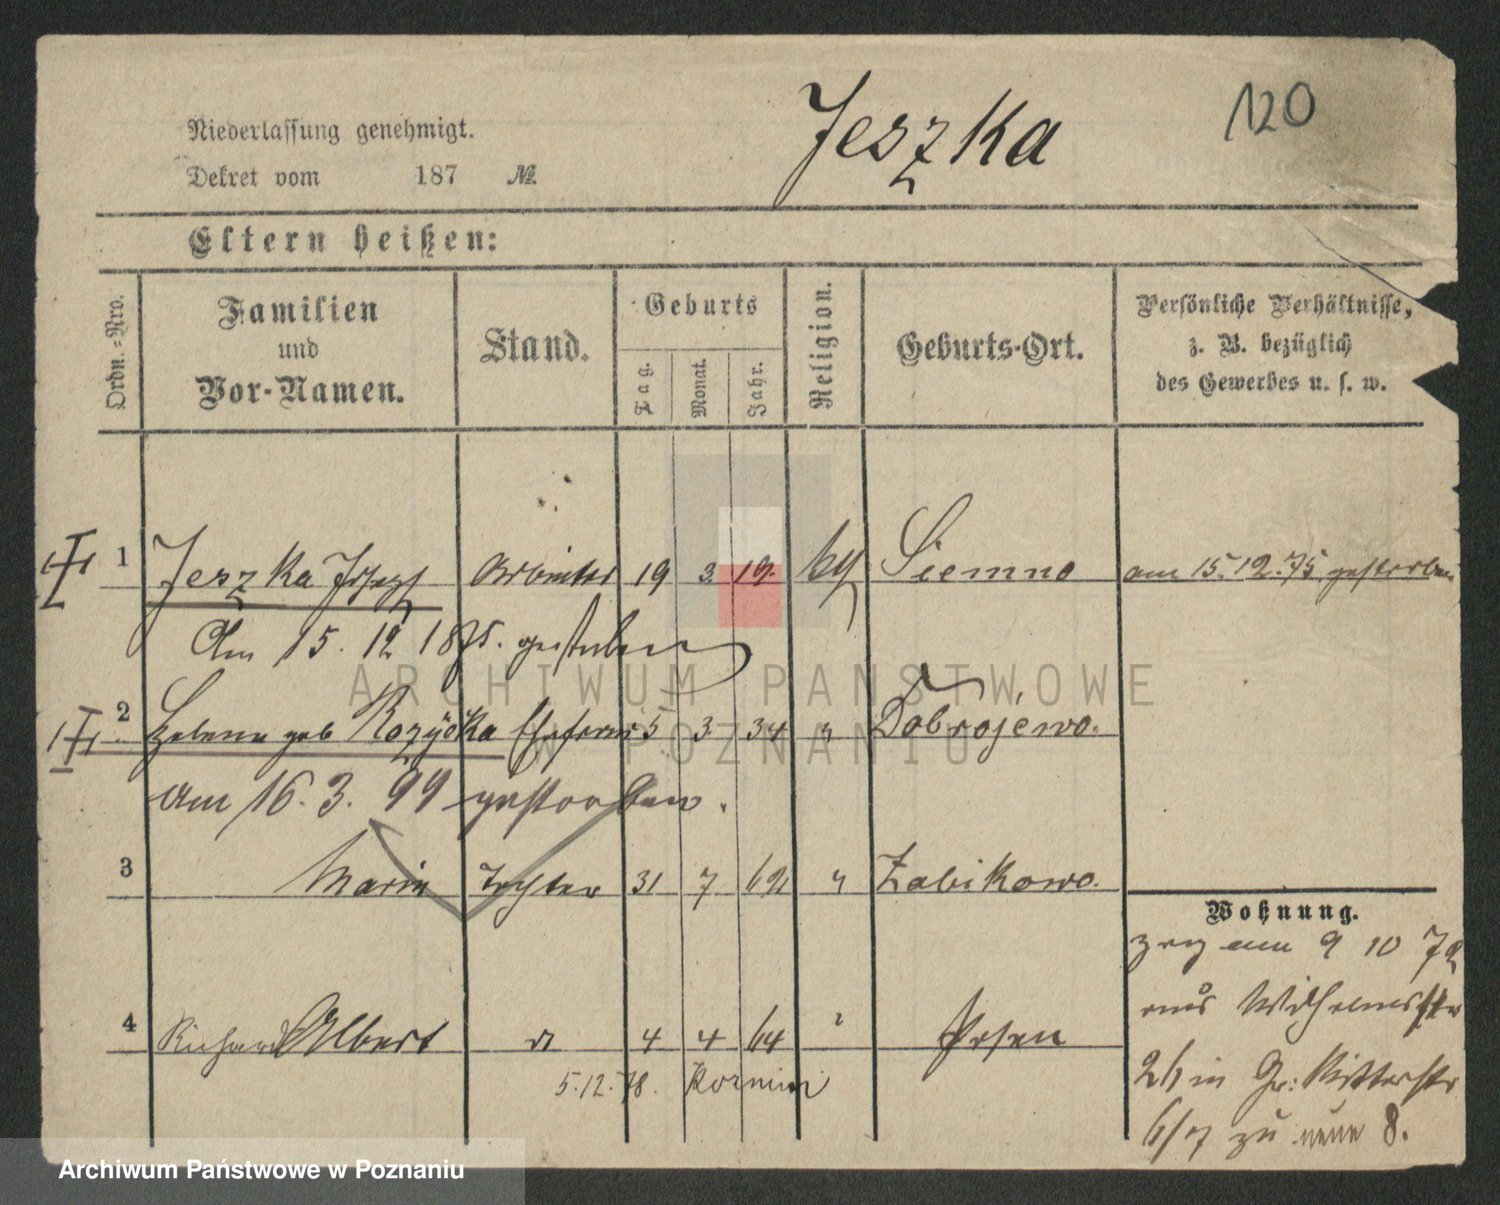 Jeszka
120
Niederlassung genehmigt.
Dekret vom 187 №
Eltern heißen:
Ordn.=Nro.
Familien und Vor-Namen.
Stand.
Geburts
Tag.
Monat.
Jahr.
Religion.
Geburts-Ort.
Persönliche Verhältnisse, z. B. bezüglich des Gewerbes u. s. w.
1 Jeszka Josef Arbeiter 19 3. 19. Siemno am 15.12.75 gestorben
Am 15. 12 1875. gestorben
2 Helena geb Rozycka Ehefrau 5 3 34 " Dobrojewo.
am 16. 3. 99 gestorben.
3 Maria Tochter 31 7 62 " Zabikowo.
Wohnung.
4 Richard Albert 4 4 64 " Posen
5.12.78.
zog am 9 10 72
aus Wilhelmsstr
26 in Gr: Ritterstr
6/7 zu neue 8.
ARCHIWUM PAŃSTWOWE
W POZNANIU
Archiwum Państwowe w Poznaniu